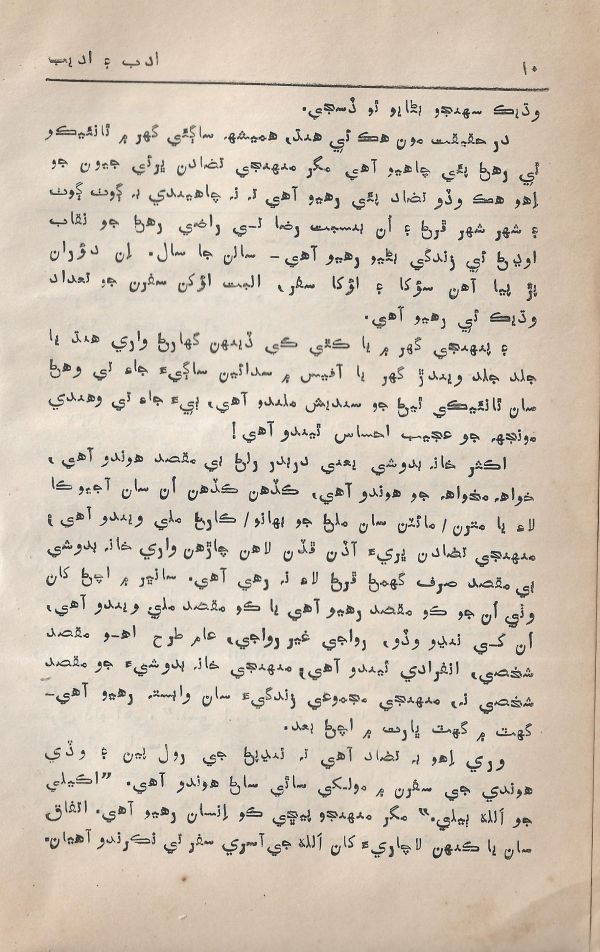 ١٠
ادب ۽ اديب
وڌيڪ سهنجو بڻايو ٿو ڏسجي.
در حقيقت مون هڪ ئي هنڌ، هميشھ ساڳئي گهر ۾ ٽانئيڪو
ٿي رهڻ پئي چاهيو آهي مگر منهنجي تضادن ڀرئي جيون جو
اِهو هڪ وڏو تضاد پئي رهيو آهي تہ نہ چاهيندي بہ ڳوٺ ڳوٺ
۽ شهر شهر ڦرڻ ۽ اُن بنسبت رضا تي راضي رهڻ جو نقاب
اوڍڻ ئي زندگي بڻيو رهيو آهي۔ سالن جا سال. اِن دؤران
پڙ پيا آهن سؤکا ۽ اؤکا سفر، البت اؤکن سفرن جو تعداد
وڌيڪ ئي رهيو آهي.
۽ پنهنجي گهر ۾ يا ڪٿي ڪي ڏينهن گهارڻ واري هنڌ يا
جلد جلد ويندڙ گهر يا آفيس ۾ سدائين ساڳيءَ جاءِ تي وهڻ
سان ٽانئيڪي ٿيڻ جو سنديش ملندو آهي، ٻيءَ جاءِ تي وهندي
مونجهہ جو عجيب احساس ٿيندو آهي!
اڪثر خانہ بدوشي يعني دربدر رلڻ بي مقصد هوندو آهي،
خواهہ مخواهہ جو هوندو آهي، ڪڏهن ڪڏهن اُن سان آجيوڪا
لاءِ يا مٽرن/مائٽن سان ملڻ جو بهانو/ڪارڻ ملي ويندو آهي؛
منهنجي تضادن ڀريءَ آڏن ڦڏن لاهن چاڙهن واري خانہ بدوشي
بي مقصد صرف گهمڻ ڦرڻ لاءِ نہ رهي آهي. سانڀر ۾ اچڻ کان
وٺي اُن جو ڪو مقصد رهيو آهي يا ڪو مقصد ملي ويندو آهي،
اُن کي ننڍو وڏو، رواجي غير رواجي، عام طرح اهو مقصد
شخصي، انفرادي ٿيندو آهي، منهنجي خانہ بدوشيءَ جو مقصد
شخصي نہ، منهنجي مجموعي زندگيءَ سان وابستہ رهيو آهي۔
گهٽ ۾ گهٽ ڀارت ۾ اچڻ بعد.
وري اِهو بہ تضاد آهي تہ ننڍپڻ جي رول ٻين ۽ وڏي
هوندي جي سفرن ۾ مولڪي سائي ساڻ هوندو آهي. ”اڪيلي
جو اَللهُ ٻيلي.“ مگر منهنجو ٻيڇي ڪو اِنسان رهيو آهي. اتفاق
سان يا ڪنهن لاچاريءَ کان اَللهُ جي آسري سفر تي نڪرندو آهيان.